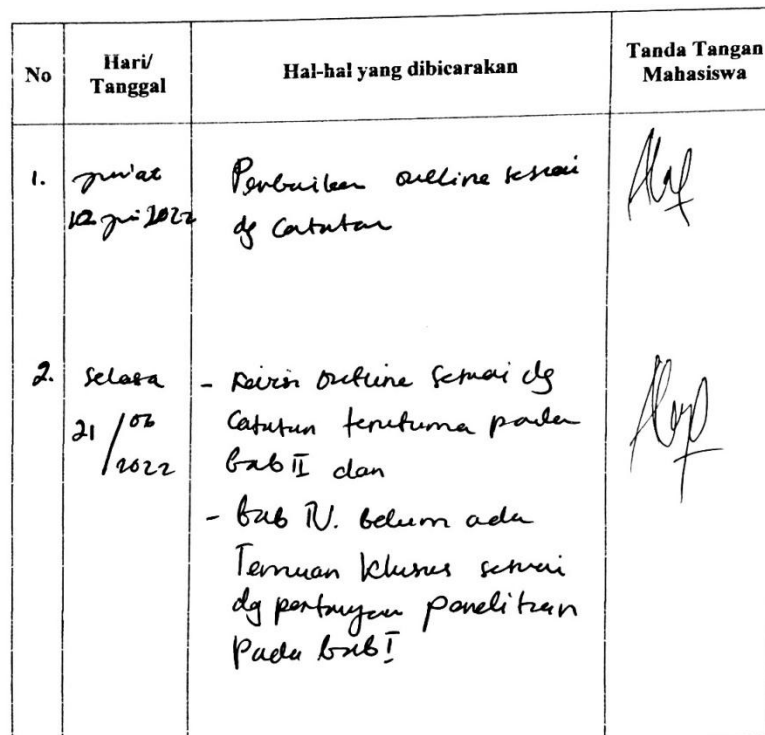 No
Hari/
Tanggal
Hal-hal yang dibicarakan
Tanda Tangan
Mahasiswa
1.
Jum'at
Juni 2022
Perbaikan outline sesuai
dg Catatan
2.
Selasa
21/06
2022
- Revisi outline sesuai dg
Catatan terutama pada
bab II dan
- bab IV. Belum ada
Temuan Khusus sesuai
dg pertanyaan penelitian
Pada bab I